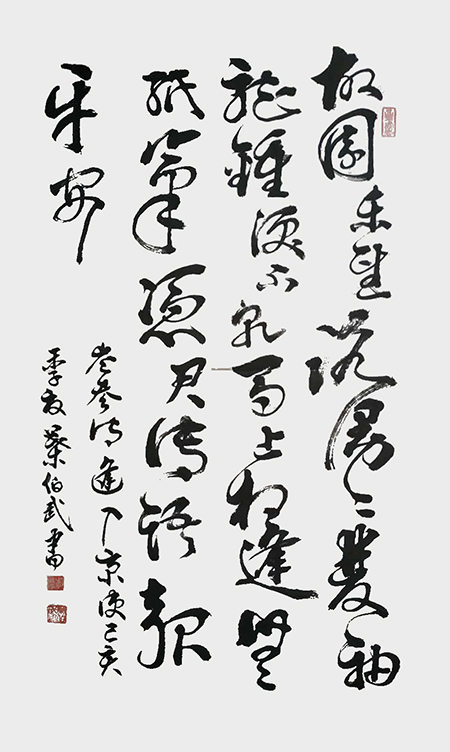 故園東望路漫〻雙袖
龍鍾淚不乾馬上相逢無
紙筆憑君傳語報
平安
岑參詩逢入京使己亥
季夏伯武書